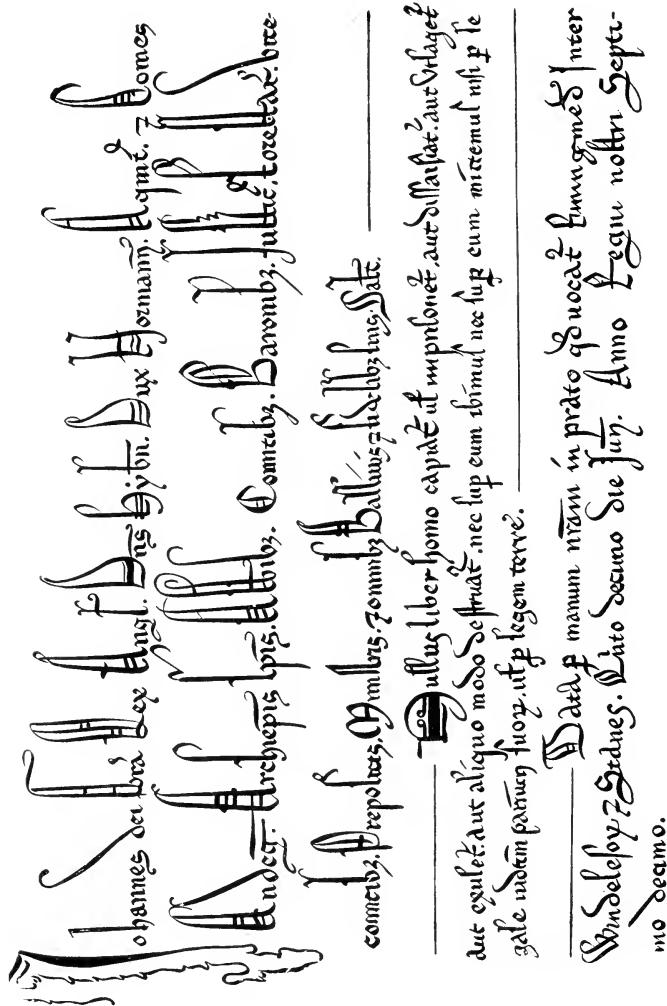 Johannes dei gra Rex Angl. Dns Hybn. Dux Normann. Aqmt. 7 Comes
Andeg. Archiepis Epis. Abbibz. Comitibz. Baronibz. Justic. Forestar. Vice-
comitibz. Prepositis. Ministris. 7 omnibz Ballivis 7 fidelibz suis. Salt.
Nullus liber homo capiat ut inprisonet. aut dissaisiat. aut Utlaget
aut exulet. aut aliquo modo destruat. nec sup eum ibimus nec sup eum mittemus nisi p le
gale iudicium parium suoz. ut p legem terre.
Data p manum nram in prato qd vocat Runingmed Inter
Windelesoz 7 Stanes. Quito decimo die Jun. Anno Regni nostri Septi-
mo decimo.